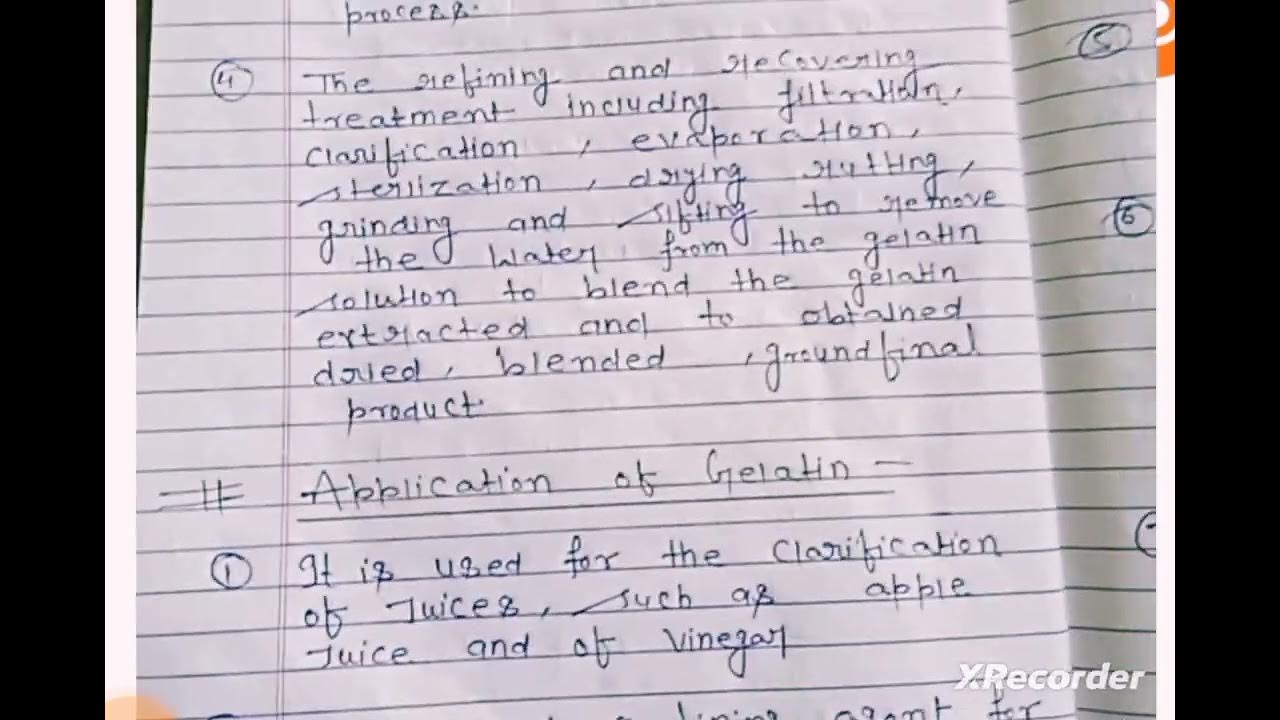 process.
④ The refining and recovering
treatment including filtration,
clarification, evaporation,
sterlization, drying rutting,
grinding and sifting to remove
the water from the gelatin
solution to blend the gelatin
extracted and to obtained
dried, blended, ground final
product.
Application of Gelatin -
① It is used for the clarification
of Juices, such as apple
Juice and of vinegar
lining agent for
⑤
⑥
XRecorder